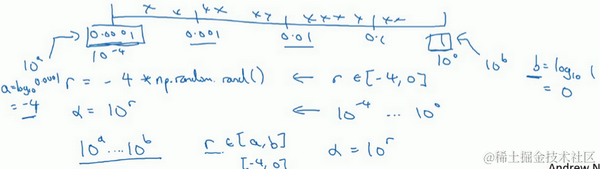 0.0001 0.001 0.01 0.1 1
10^a 10^-4 10^0 10^b
a = log_10 0.0001 r = -4 * np.random.rand() ← r ∈ [-4, 0] b = log_10 1
= -4 = 0
α = 10^r ← 10^-4 ... 10^0
10^a ... 10^b r ∈ [a, b] α = 10^r
[-4, 0]
@稀土掘金技术社区
Andrew N